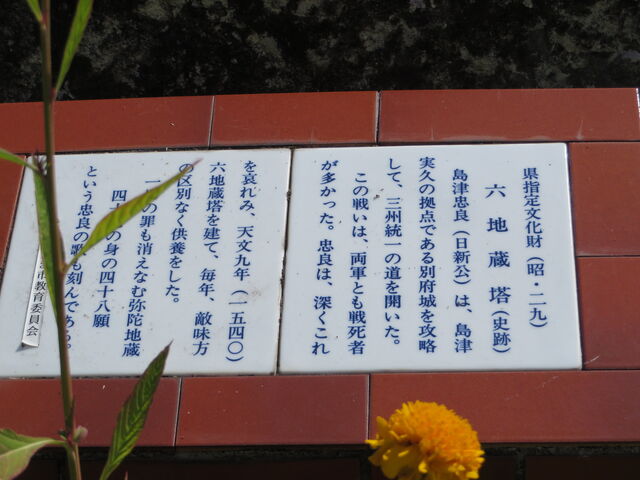 県指定文化財(昭・二九)
六地蔵塔(史跡)
島津忠良(日新公)は、島津
実久の拠点である別府城を攻略
して、三州統一の道を開いた。
この戦いは、両軍とも戦死者
が多かった。忠良は、深くこれ
を哀れみ、天文九年(一五四〇)
六地蔵塔を建て、毎年、敵味方
の区別なく供養をした。
の罪も消えなむ弥陀地蔵
四 の身の四十八願
という忠良の も刻んである。
市教育委員会